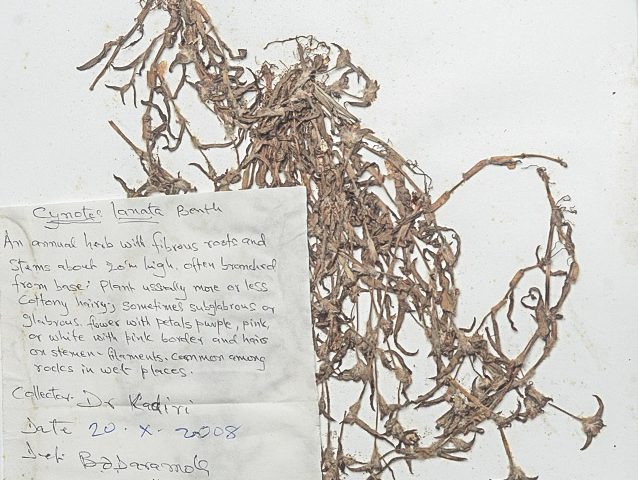 Cynotis lanata Benth
An annual herb with fibrous roots and
stems about 20cm high. often branched
from base; Plant usually more or less
Cottony hairy; sometimes subglabrous or
glabrous. flower with petals purple, pink,
or white with pink border and hairs
on stemen filaments. common among
rocks in wet places.
Collector. Dr Kadiri
Date 20. X. 2008
Det: B.O. Daramola